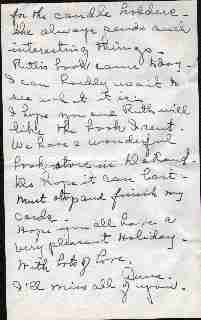 for the candle holders -
She always sends such
interesting things -
Ruth's book came today -
I can hardly wait to
see what it is -
I hope you and Ruth will
like the book I sent.
We have a wonderful
book store in
hope it can last -
Must stop and finish my
cards -
Hope you all have a
very pleasant Holiday -
With lots of love.
I'll miss all of you.